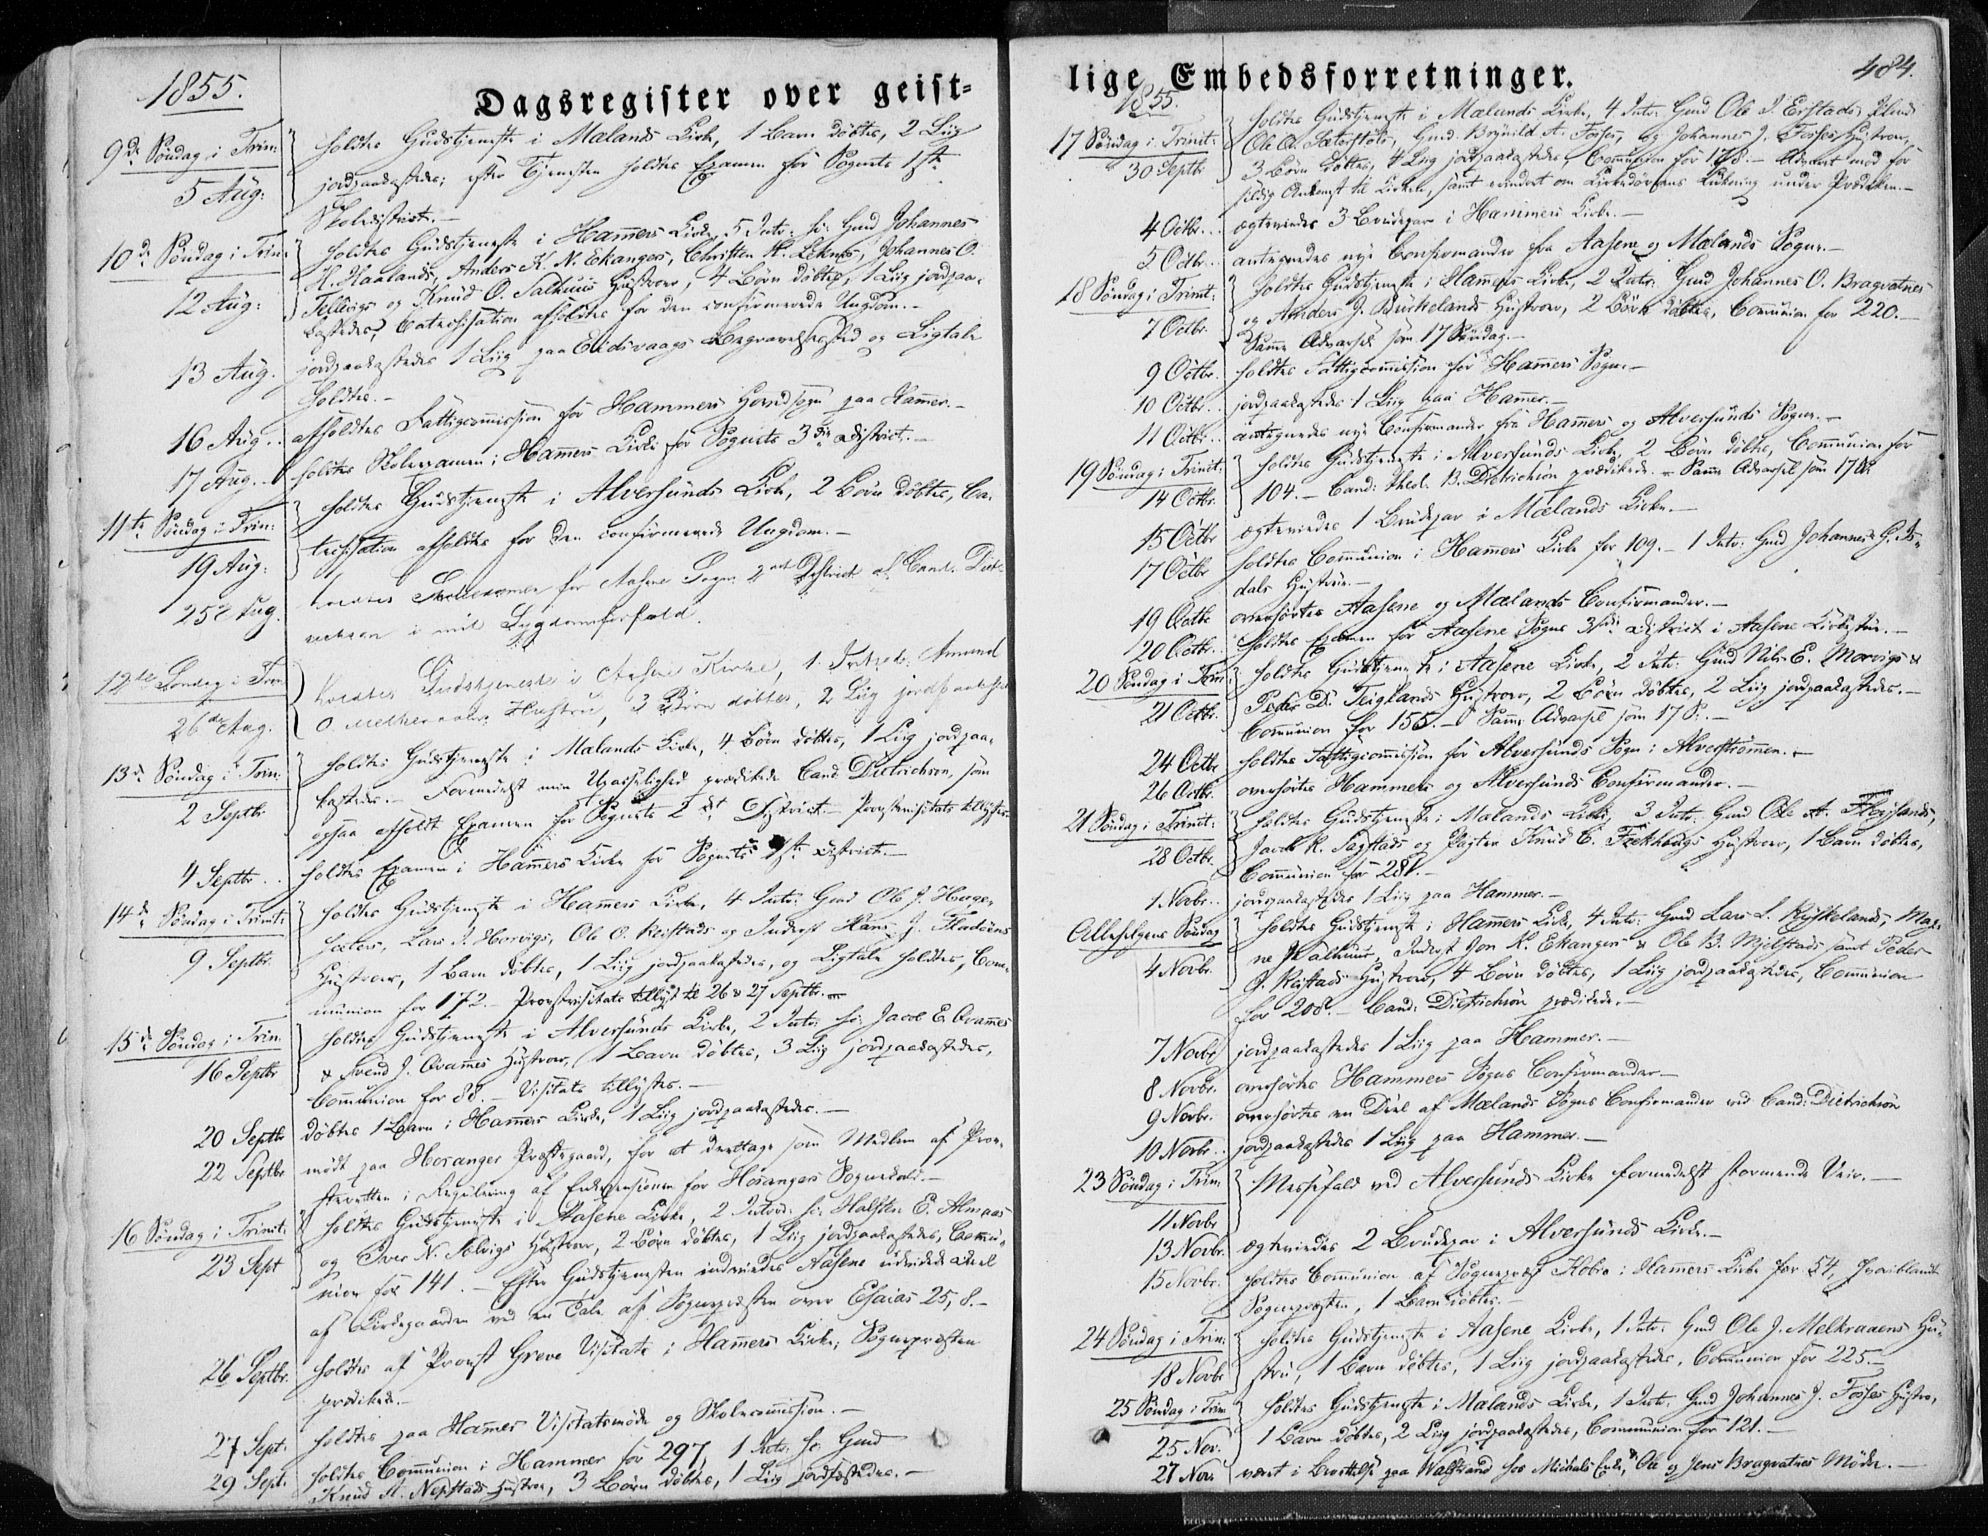 1855.
Dagsregister over geist=
9de Søndag i Trin:
5 Aug:
holdtes Gudstjeneste i Mælands Kirke, 1 Barn døbtes, 2 Liig
jordpaakastedes; efter Tjenesten holdtes Examen for Sognets 1ste
Skoledistrict.—
10de Søndag i Trin:
12 Aug:
holdtes Gudstjeneste i Hammers Kirke, 5 Intr: Gmd Johannes
K. Haalands, Anders K. N. Ekanger, Christen Leknes, Johannes O.
Tellevigs og Knud O. Salhuus Hustroer, 4 Børn døbtes, 1 Liig jordpaa-
kastedes, Catechisation afholdtes for den confirmerede Ungdom.—
13 Aug.
jordpaakastedes 1 Liig paa Eidsvaags Begravelsessted og Ligtale
holdtes.—
16 Aug.
afholdtes Fattigcommission for Hammers Hovedsogn paa Hammer.—
17 Aug.
holdtes Skoleexamen i Hammers Kirke for Sognets 3die District.—
11te Søndag i Trin:
19 Aug:
holdtes Gudstjeneste i Alversunds Kirke, 2 Børn døbtes, Ca-
techisation afholdtes for den confirmerede Ungdom.—
25de Aug.
holdtes Skoleexamen for Aasene Sogns 2det District af Cand. Diet-
richson i mit Sygdomsforfald.
12te Søndag i Trin
26de Aug.
holdtes Gudstjeneste i Aasene Kirke, 1 Introd. Amund
O. Hustru, 3 Børn døbtes, 2 Liig jordpaakastedes
13de Søndag i Trin.
2 Septbr
holdtes Gudstjeneste i Mælands Kirke, 4 Børn døbtes, 1 Liig jordpaa-
kastedes.— Formedelst min Upasselighed prædikede Cand Dietrichson, som
ogsaa afholdt Examen for Sognets 2det District.— Provstevisitats tillystes.
4 Septbr
holdtes Examen i Hammers Kirke for Sognets 1ste District.—
14de Søndag i Trinit:
9 Septbr.
holdtes Gudstjeneste i Hammers Kirke, 4 Intr: Gmd Ole J. Hauge-
sæters, Lars J. Horvigs, Ole O. Reistads og Inderst Hans J.
Hustroer, 1 Barn døbtes, 1 Liig jordpaakastedes, og Ligtale holdtes, Com-
munion for 172.— Provstevisitats tillyst til 26 & 27 Septbr.—
15de Søndag i Trin.
16 Septbr
holdtes Gudstjeneste i Alversunds Kirke, 2 Intr: Jacob E. Qvammes
& Svend J. Qvammes Hustroer, 1 Barn døbtes, 3 Liig jordpaakastedes,
Communion for 88.— Visitats tillystes.—
20 Septbr
døbtes 1 Barn i Hammers Kirke, 1 Liig jordpaakastedes.—
22 Septbr
mødt paa Hosanger Præstegaard, for at deeltage som Medlem af Prov-
steretten i Regulering af Enkepensionen for Hosangers Sognekald.—
16 Søndag i Trinit:
23 Sept
holdtes Gudstjeneste i Aasene Kirke, 2 Introd: Halsten E. Almaas
og Iver N. Hustroer, 2 Børn døbtes, 1 Liig jordpaakastedes, Commu-
nion for 141.— Efter Gudstjenesten indviedes Aasene udvidede Deel
af Kirkegaarden ved en Tale af Sognepræsten over Esaias 25, 8.—
26 Septbr.
holdtes af Provst Greve Visitats i Hammers Kirke; Sognepræsten
prædikede.—
27 Sept.
holdtes paa Hammer Visitatsmøde og Skolecommission.—
29 Sept.
holdtes Communion i Hammer for 297, 1 Intr: Gmd
Knud A. Nepstads Hustroe, 3 Børn døbtes, 1 Liig jordfæstedes.—
lige Embedsforretninger.
484.
1855.
17 Søndag i Trinit:
30 Septbr
holdtes Gudstjeneste i Mælands Kirke, 4 Intr: Gmd Ole J. Eistads,
Ole O. Gmd. Brynild A. Fosse, og Johannes J. Fosses Hustroer,
3 Børn døbtes, 4 Liig jordpaakastedes, Communion for 178.— Advaret mod for
sildig Ankomst til Kirken, samt erindret om Kirkedørens Lukning under Prædiken.—
4 Octbr.
ægteviedes 3 Brudepar i Hammers Kirke.—
5 Octbr.
antegnedes nye Confirmander fra Aasene og Mælands Sogne.—
18 Søndag i Trinit:
7 Octbr.
holdtes Gudstjeneste i Hammers Kirke, 2 Intr: Gmd Johannes O. Bragvatnes
og Anders J. Birkelands Hustroer, 2 Børn døbtes, Communion for 220.—
Samme Advarsel som 17 Søndag.—
9 Octbr.
holdtes Fattigcommission for Hammers Sogn.—
10 Octbr.
jordpaakastedes 1 Liig paa Hammer.—
11 Octbr.
antegnedes nye Confirmander fra Hammers og Alversunds Sogne.—
19 Søndag i Trinit:
14 Octbr.
holdtes Gudstjeneste i Alversunds Kirke, 2 Børn døbtes, Communion for
104.— Cand: theol. B. Dietrichson prædikede.— Samme Advarsel som 17 S.
15 Octbr
ægteviedes 1 Brudepar i Mælands Kirke.—
17 Octbr
holdtes Communion i Hammers Kirke for 109.— 1 Intr: Gmd Johannes G. Is-
dals Hustrue.—
19 Octbr
overhørtes Aasene og Mælands Confirmander.—
20 Octbr.
holdtes Examen for Aasene Sogns 3die District i Aasene Kirkestue.—
20 Søndag i Trin:
21 Octbr.
holdtes Gudstjeneste i Aasene Kirke, 2 Intr: Gmd Nils E. Morvigs &
Peder D. Teiglands Hustroer, 2 Børn døbtes, 2 Liig jordpaakastedes.—
Communion for 155.— Samme Advarsel som 17 S.—
24 Octbr
holdtes Fattigcommission for Alversunds Sogn i Alverstrømmen.—
26 Octbr.
overhørtes Hammers og Alversunds Confirmander.—
21 Søndag i Trinit:
28 Octbr.
holdtes Gudstjeneste i Mælands Kirke, 3 Intr: Gmd Ole A.
Jacob K. Sagstads og Pagter Knud C. Hustroer, 1 Barn døbtes,
Communion for 281.—
1 Novbr.
jordpaakastedes 1 Liig paa Hammer.—
Allehelgens Søndag
4 Novbr.
holdtes Gudstjeneste i Hammers Kirke, 4 Intr: Gmd Lars L. Mag-
ne Inderst Jon K. Ekanger & Ole B. Mjelstads samt Peder
J. Reistads Hustroer, 4 Børn døbtes, 1 Liig jordpaakastedes, Communion
for 208.— Cand: Dietrichson prædikede.—
7 Novbr
jordpaakastedes 1 Liig paa Hammer.—
8 Novbr.
overhørtes Hammers Sogns Confirmander—
9 Novbr.
overhørtes en Deel af Mælands Sogns Confirmander ved Cand: Dietrichson
10 Novbr.
jordpaakastedes 1 Liig paa Hammer.—
23 Søndag i Trin.
11 Novbr
Messefald ved Alversunds Kirke formedelst stormende Veir.—
13 Novbr.
ægteviedes 2 Brudepar i Alversunds Kirke.—
15 Novbr.
holdtes Communion af Sognepræst Kobro i Hammers Kirke for 54, hvoriblandt
Sognepræsten, 1 Barn døbtes.—
24 Søndag i Trin:
18 Novbr
holdtes Gudstjeneste i Aasene Kirke, 1 Intr. Gmd Ole J. Melkraaens Hu-
stru, 1 Barn døbtes, 1 Liig jordpaakastedes, Communion for 225.—
25 Søndag i Trin
25 Nov.
holdtes Gudstjeneste i Mælands Kirke, 1 Intr. Gmd Johannes J. Fosses Hustro,
1 Barn døbtes, 2 Liig jordpaakastedes, Communion for 121.—
27 Nov.
været i Berettelse paa Valestrand hos Michals Enke, Ole og Jens Bragvatnes Moder.—